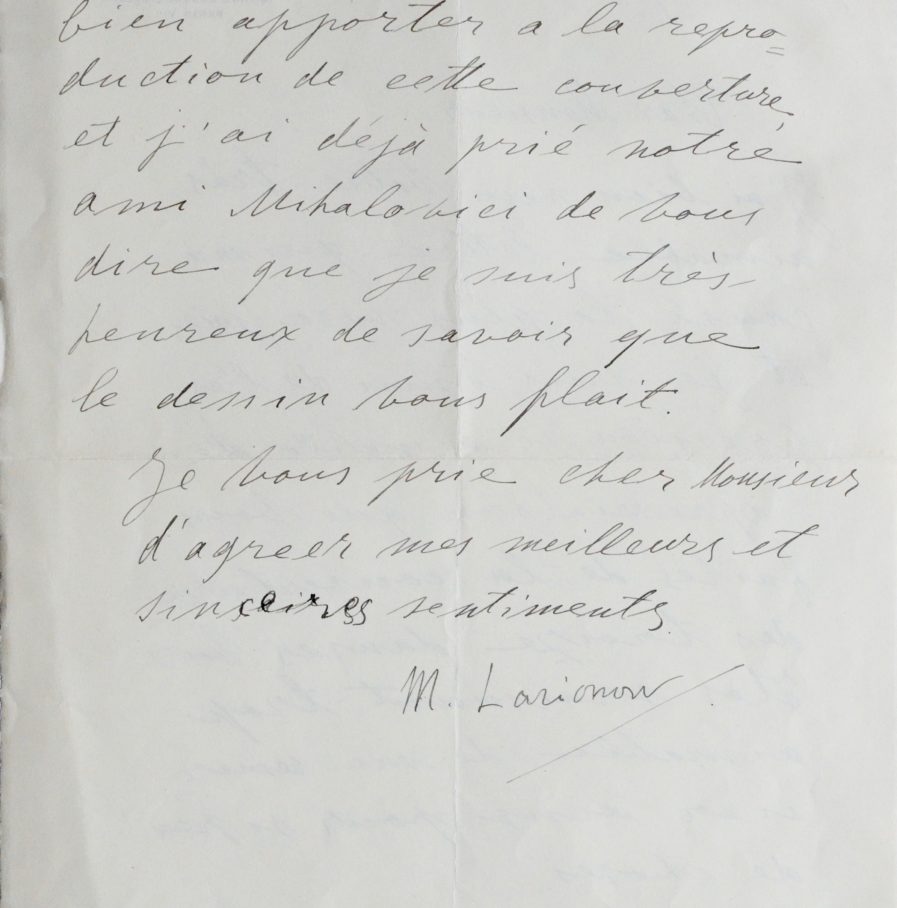 bien apporter a la repro=
duction de cette couverture
et j'ai déjà prié notré
ami Mihalovici de vous
dire que je suis très
heureux de savoir que
le dessin vous plait.
Je vous prie cher Monsieur
d'agreer mes meilleurs et
sinceires sentiments.
M. Larionow